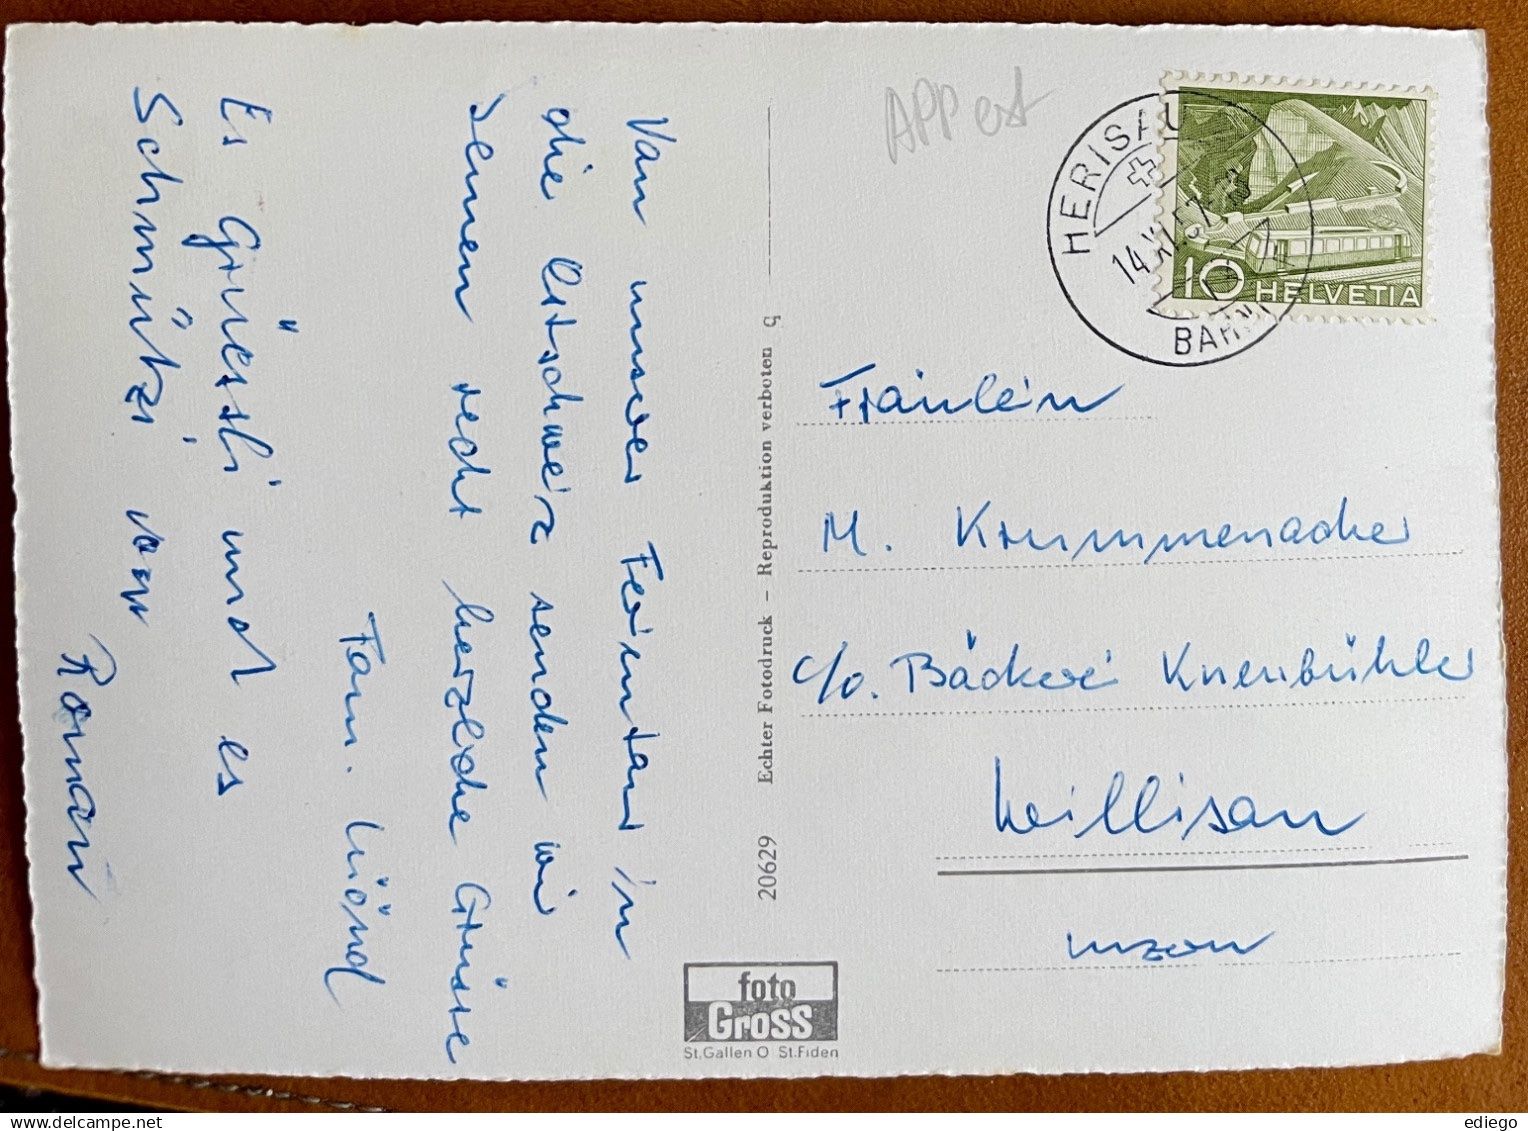 Von unserer Ferientour in
die Ostschweiz senden wir
Jemen recht herzliche Grüsse
Fam. Lüönd
Es Grüessli und es
Schmützi vom
Roman
APP ext
HERISAU
14.XI.57.
BAHN
10 HELVETIA
Fräulein
M. Krummenacher
c/o. Bäckerei Kneubühler
Willisau
Luzern
20629 Echter Fotodruck – Reproduktion verboten q
foto
Gross
St.Gallen O St.Fiden
ediego